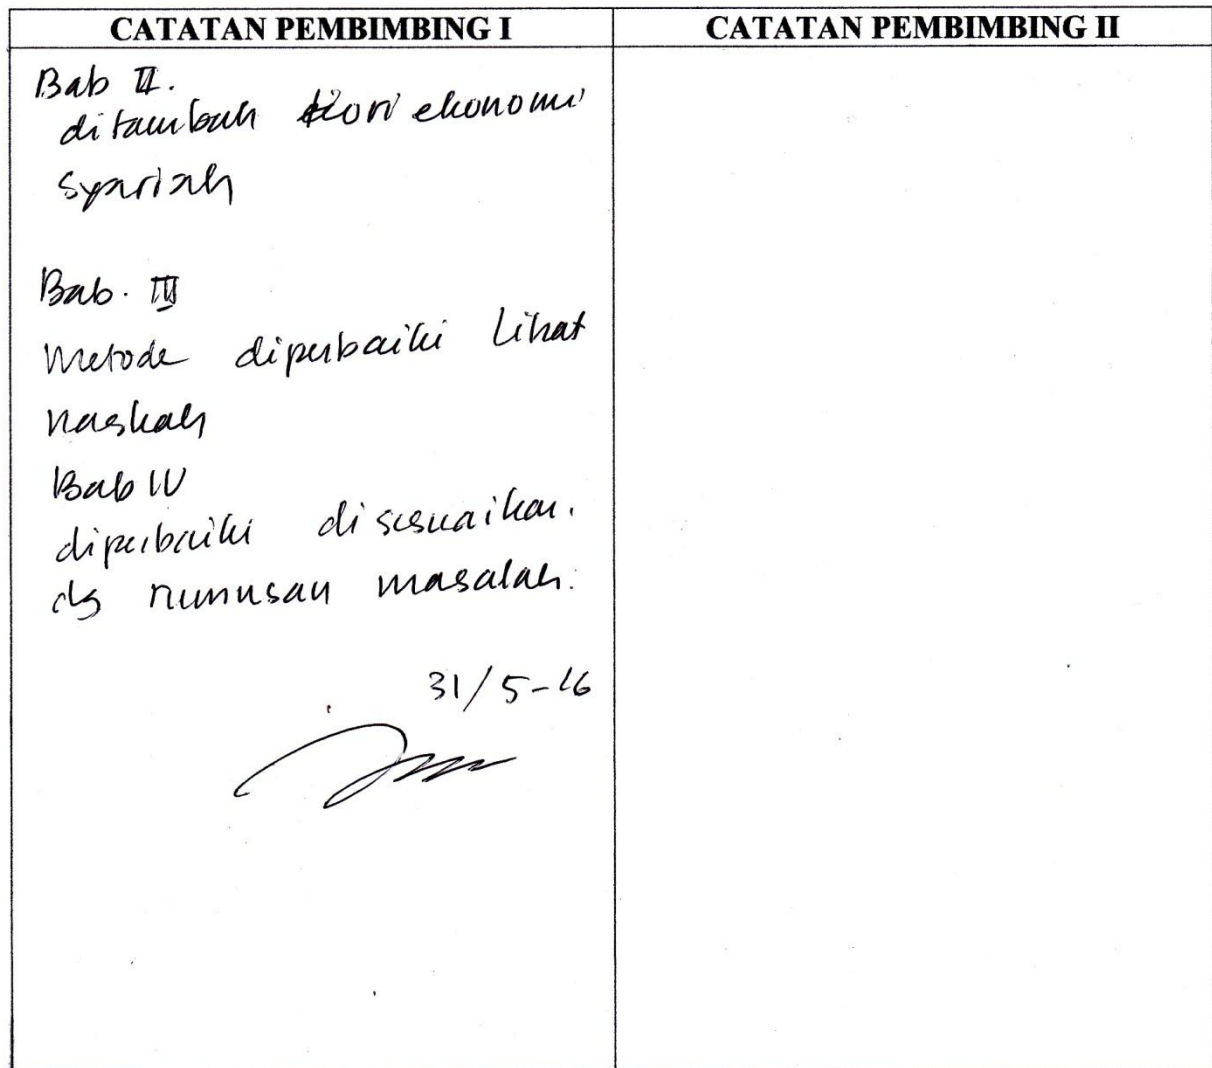 CATATAN PEMBIMBING I
CATATAN PEMBIMBING II
Bab II.
ditambah teori ekonomi
syariah
Bab. III
Metode diperbaiki Lihat
naskah
Bab IV
diperbaiki disesuaikan.
dg rumusan masalah.
31/5-16